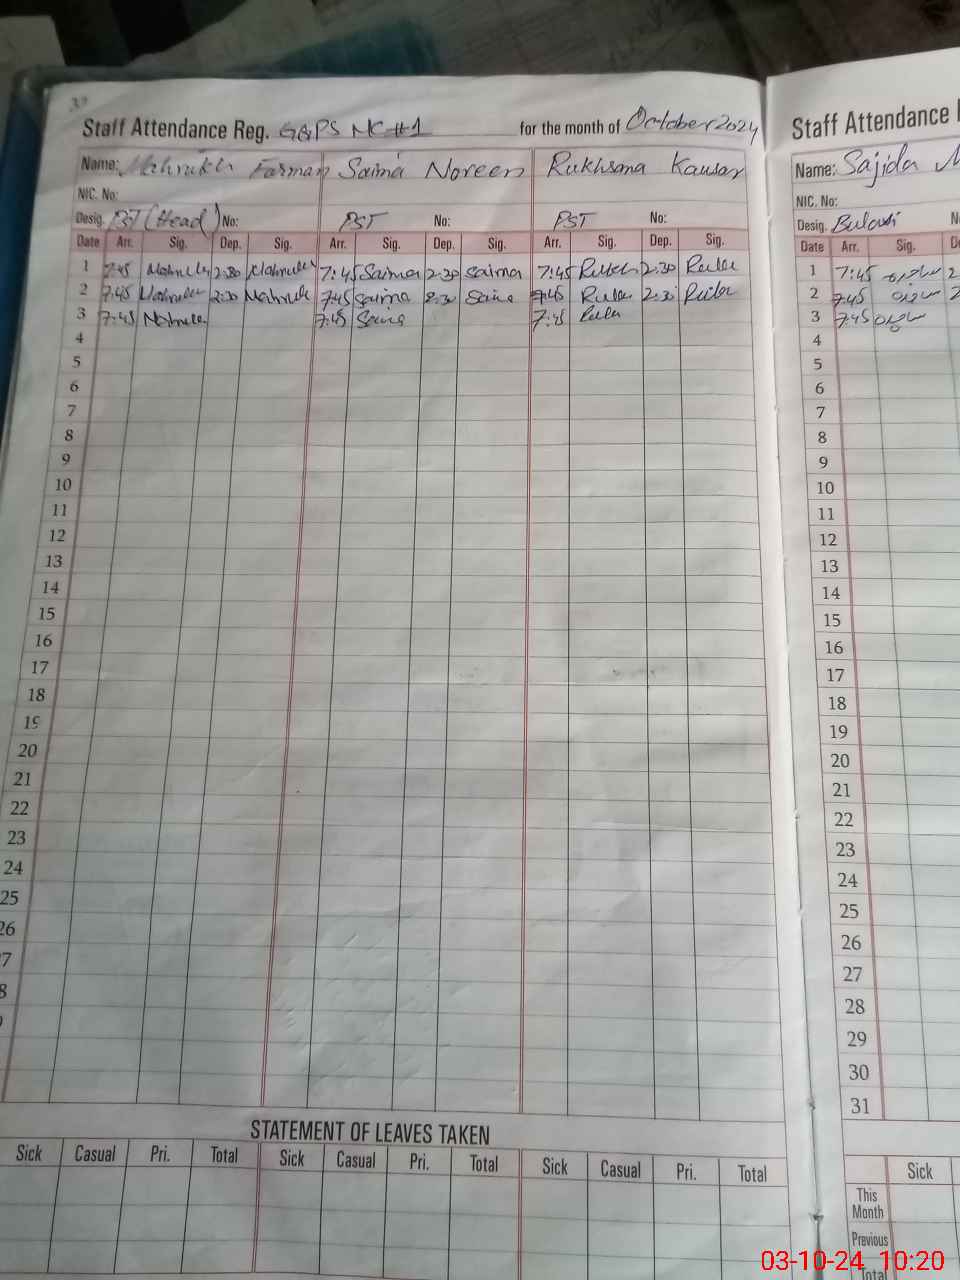 37
Staff Attendance Reg. GGPS NC #1 for the month of October 2024
Name: Mahrukh Farman Saima Noreen Rukhsana Kausar
NIC. No:
Desig. PST (Head) No: PST No: PST No:
Date Arr. Sig. Dep. Sig. Arr. Sig. Dep. Sig. Arr. Sig. Dep. Sig.
1 7:45 2:30 7:45 Saima 2:30 Saima 7:45 2:30
2 7:45 2:30 7:45 Saima 2:30 7:45 2:30
3 7:45 7:45 7:45
4
5
6
7
8
9
10
11
12
13
14
15
16
17
18
19
20
21
22
23
24
25
26
7
8
STATEMENT OF LEAVES TAKEN
Sick Casual Pri. Total Sick Casual Pri. Total Sick Casual Pri. Total
Staff Attendance
Name: Sajida
NIC. No:
Desig.
Date Arr. Sig.
1 7:45 ساجدہ 2
2 7:45 ساجدہ 2
3 7:45 ساجدہ
4
5
6
7
8
9
10
11
12
13
14
15
16
17
18
19
20
21
22
23
24
25
26
27
28
29
30
31
Sick
This
Month
Previous
Total
03-10-24 10:20